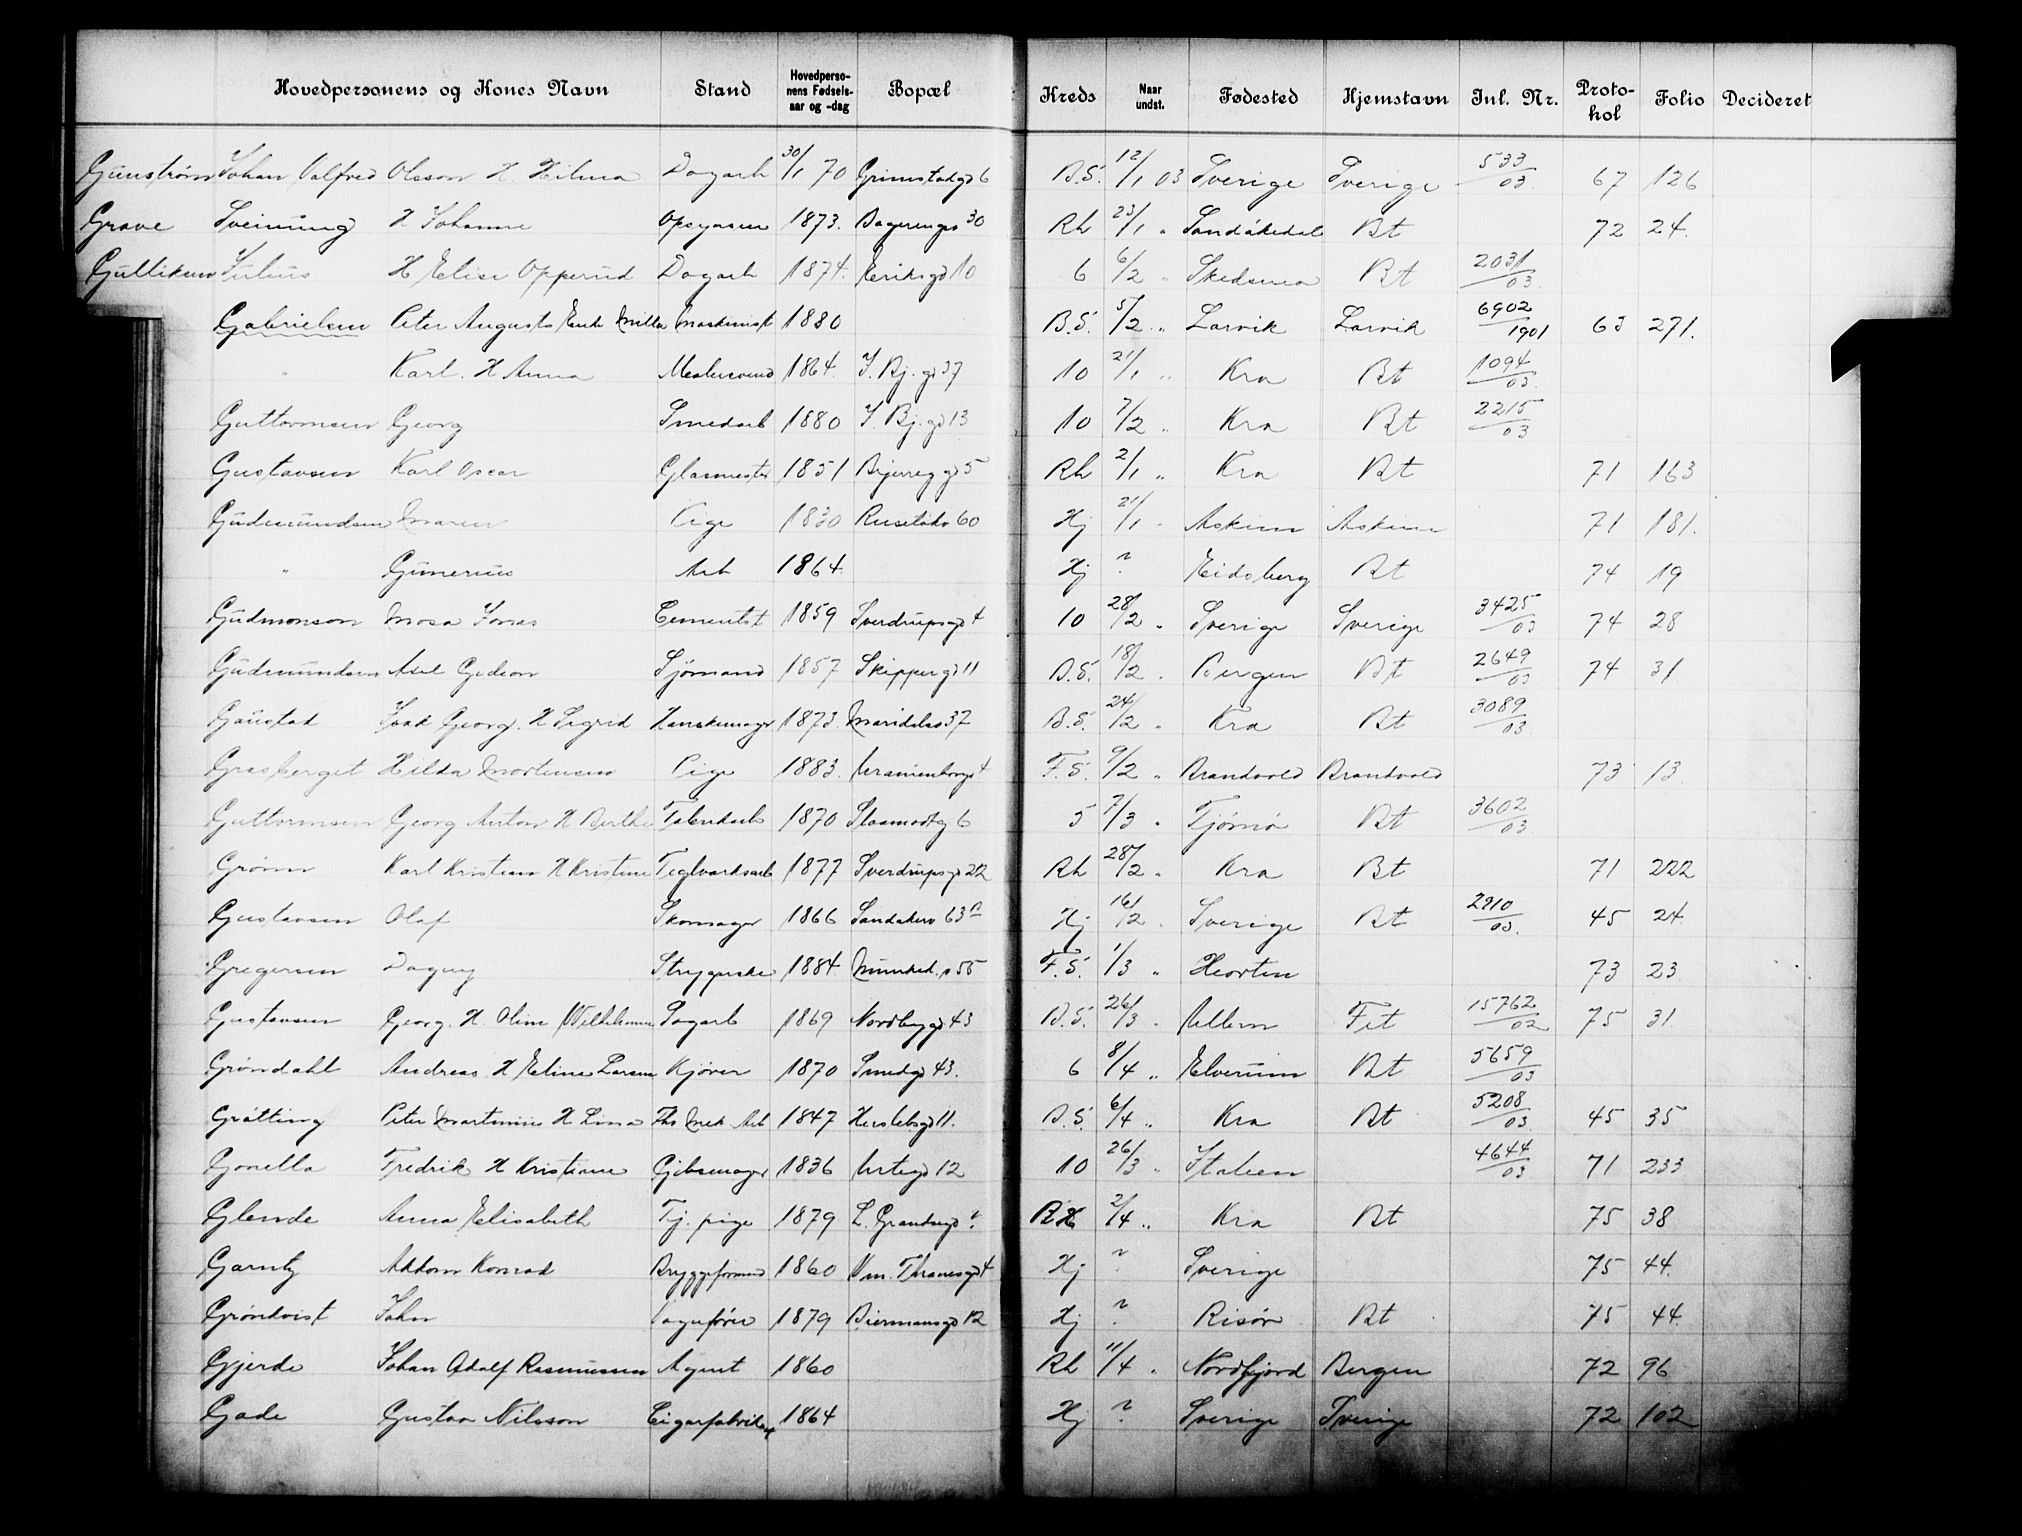 Hovedpersonens og Kones Navn Stand Hovedpersonens Fødselsaar og -dag Bopæl Kreds Naar undst. Fødested Hjemstavn Inl. Nr. Protokol Folio Decideret
Johan Valfred Olsson H Hilma Dagarb 30/1 70 Grimstadgd 6 B.S. 12/1 03 Sverige Sverige 533/03 67 126
Grave Sveinung H Johanne 1873. 30 Rh 23/1 " Bt 72 24.
Julius H Elise Opperud Dagarb 1874. Eriksgd 10 6 6/2 " Skedsmo Bt 2031/03
Gabrielsen Peter August Maskinist 1880 B.S. 5/2 " Larvik Larvik 6902/1901 63 271.
" Karl. H Anna Malersvend 1864 J. Bj. gd 37 10 21/1 " Kra Bt 1094/03
Guttormsen Georg Smedarb 1880 J. Bj. gd 13 10 7/2 " Kra Bt 2215/03
Gustavsen Karl Oscar Glasmester 1851 5 Rh 2/1 " Kra Bt 71 163
Gudmundsen Maren Pige 1830 60 Hj 21/1 " Askim Askim 71 181.
" Gunerius Arb 1864. Hj ? Eidsberg Bt 74 19
Gudmonson Jonas 1859 Sverdrupsgd 4 10 28/2 " Sverige Sverige 3425/03 74 28
Gudmundsen Axel Gedeon Sjömand 1857 Skippergd 11 B.S. 18/2 " Bergen Bt 2649/03 74 31
Gaustad Isak Georg. H Sigrid Hanskemager 1873. Maridalsv 37 B.S. 24/2 " Kra Bt 3089/03
Grasberget Hilda Mortensen Pige 1883. Uranienborgv 4 F.S. 9/2 " Brandvold Brandvold 73 13
Guttormsen Georg Anton H Berthe Fabrikarb 1870 6 5 7/3 " Tjömö Bt 3602/03
Grönn Karl Kristian H Kristine Teglverksarb 1877 Sverdrupsgd 22 Rh 28/2 " Kra Bt 71 222
Gustavsen Olaf Skomager 1866 Sandakerv 63 Hj 16/2 " Sverige Bt 2910/03. 45 24
Gregersen Dagny Strygerske 1884 55 F.S. 1/3 " Horten 73 23
Gustavsen Georg. H. Oline Dagarb 1869 Nordbygd 43 B.S. 26/3 " Ullern Fet 15762/02 75 31
Gröndahl Andreas H Eline Larsen Kjörer 1870 Smedgd 43. 6 8/4 " Elverum Bt 5659/03
Gråtting Peter Martinius H Lina 1847 Herslebsgd 11. B.S. 6/4 " Kra Bt 5208/03. 45 35
Gonella Fredrik H Kristiane Gibsmager 1836 Urtegd 12 10 26/3 " Italien 4644/03 71 233
Glende Anna Elisabeth Tj. pige 1879 2/4 " Kra Bt 75 38
Garntz Konrad Bryggeformand 1860 Vm. Thranesgd 4 Hj ? Sverige 75 44.
Gröndvist John 1879 Biermansgd 12 Hj ? Risör Bt 75 44.
Gjerde Johan Adolf Rasmussen Agent 1860 Rh 11/4 " Nordfjord Bergen 72 96
Gade Gustav Nilsson 1864 Hj ? Sverige Sverige 72 102